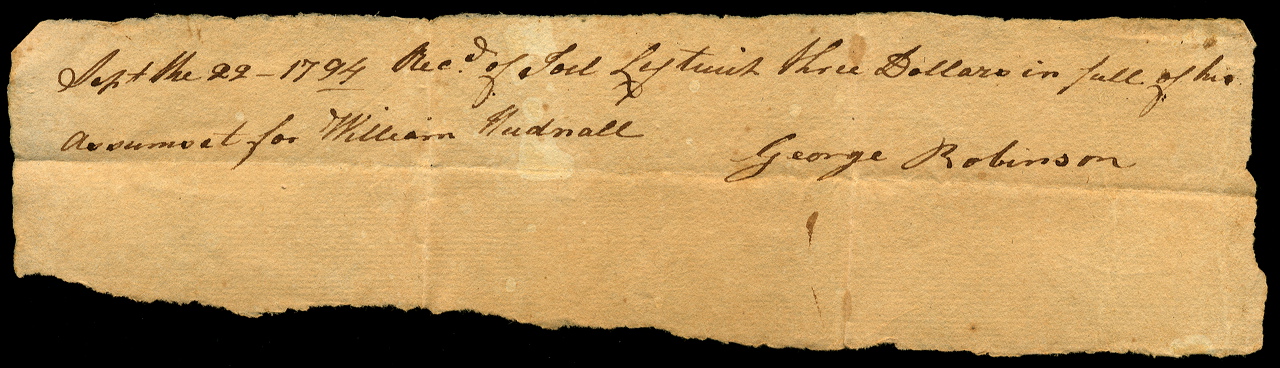 Sept the 22 - 1794 Recd. of Joel Leftwich three Dollars in full of his
assumset for William Nudnall
George Robinson